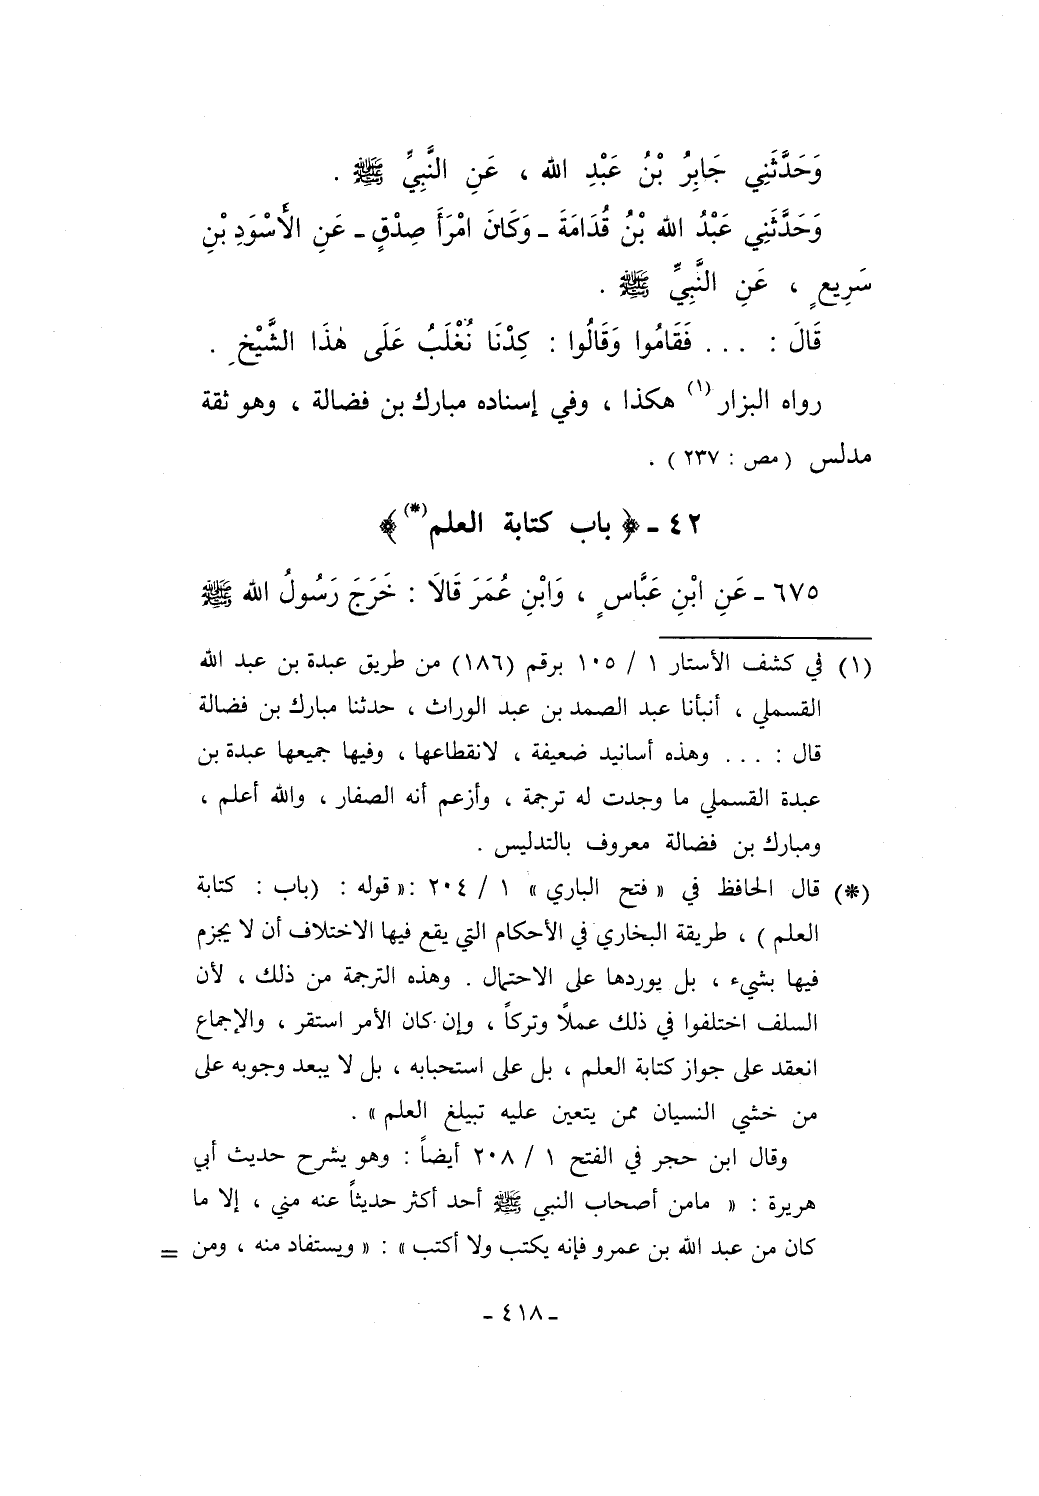 وَحَدَّثَنِي جَابِرُ بْنُ عَبْدِ الله ، عَنِ النَّبِيِّ ﷺ .
وَحَدَّثَنِي عَبْدُ الله بْنُ قُدَامَةَ ـ وَكَانَ امْرَأَ صِدْقٍ ـ عَنِ الأَسْوَدِ بْنِ
سَرِيعٍ ، عَنِ النَّبِيِّ ﷺ .
قَالَ : ... فَقَامُوا وَقَالُوا : كِدْنَا نُغْلَبُ عَلَى هٰذَا الشَّيْخِ .
رواه البزار (١) هكذا ، وفي إسناده مبارك بن فضالة ، وهو ثقة
مدلس ( مص : ٢٣٧ ) .
٤٢ ـ ﴿ باب كتابة العلم (*) ﴾
٦٧٥ ـ عَنِ ابْنِ عَبَّاسٍ ، وَابْنِ عُمَرَ قَالَا : خَرَجَ رَسُولُ الله ﷺ
(١) في كشف الأستار ١ / ١٠٥ برقم (١٨٦) من طريق عبدة بن عبد الله
القسملي ، أنبأنا عبد الصمد بن عبد الوراث ، حدثنا مبارك بن فضالة
قال : ... وهذه أسانيد ضعيفة ، لانقطاعها ، وفيها جميعها عبدة بن
عبدة القسملي ما وجدت له ترجمة ، وأزعم أنه الصفار ، والله أعلم ،
ومبارك بن فضالة معروف بالتدليس .
(*) قال الحافظ في « فتح الباري » ١ / ٢٠٤ :« قوله : (باب : كتابة
العلم ) ، طريقة البخاري في الأحكام التي يقع فيها الاختلاف أن لا يجزم
فيها بشيء ، بل يوردها على الاحتمال . وهذه الترجمة من ذلك ، لأن
السلف اختلفوا في ذلك عملاً وتركاً ، وإن كان الأمر استقر ، والإجماع
انعقد على جواز كتابة العلم ، بل على استحبابه ، بل لا يبعد وجوبه على
من خشي النسيان ممن يتعين عليه تبيلغ العلم » .
وقال ابن حجر في الفتح ١ / ٢٠٨ أيضاً : وهو يشرح حديث أبي
هريرة : « مامن أصحاب النبي ﷺ أحد أكثر حديثاً عنه مني ، إلا ما
كان من عبد الله بن عمرو فإنه يكتب ولا أكتب » : « ويستفاد منه ، ومن =
ـ ٤١٨ ـ